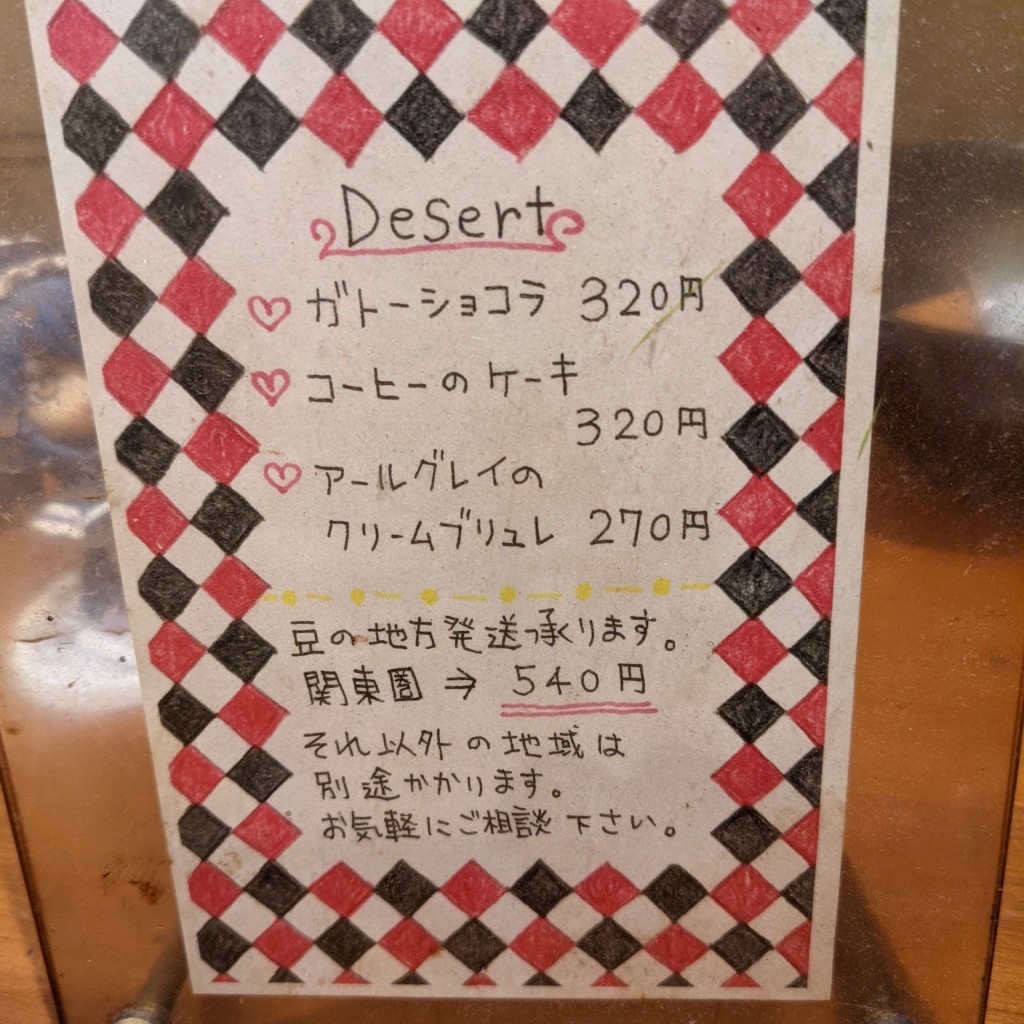 Desert
ガトーショコラ 320円
コーヒーのケーキ
320円
アールグレイの
クリームブリュレ 270円
豆の地方発送承ります。
関東圏 ⇒ 540円
それ以外の地域は
別途かかります。
お気軽にご相談下さい。